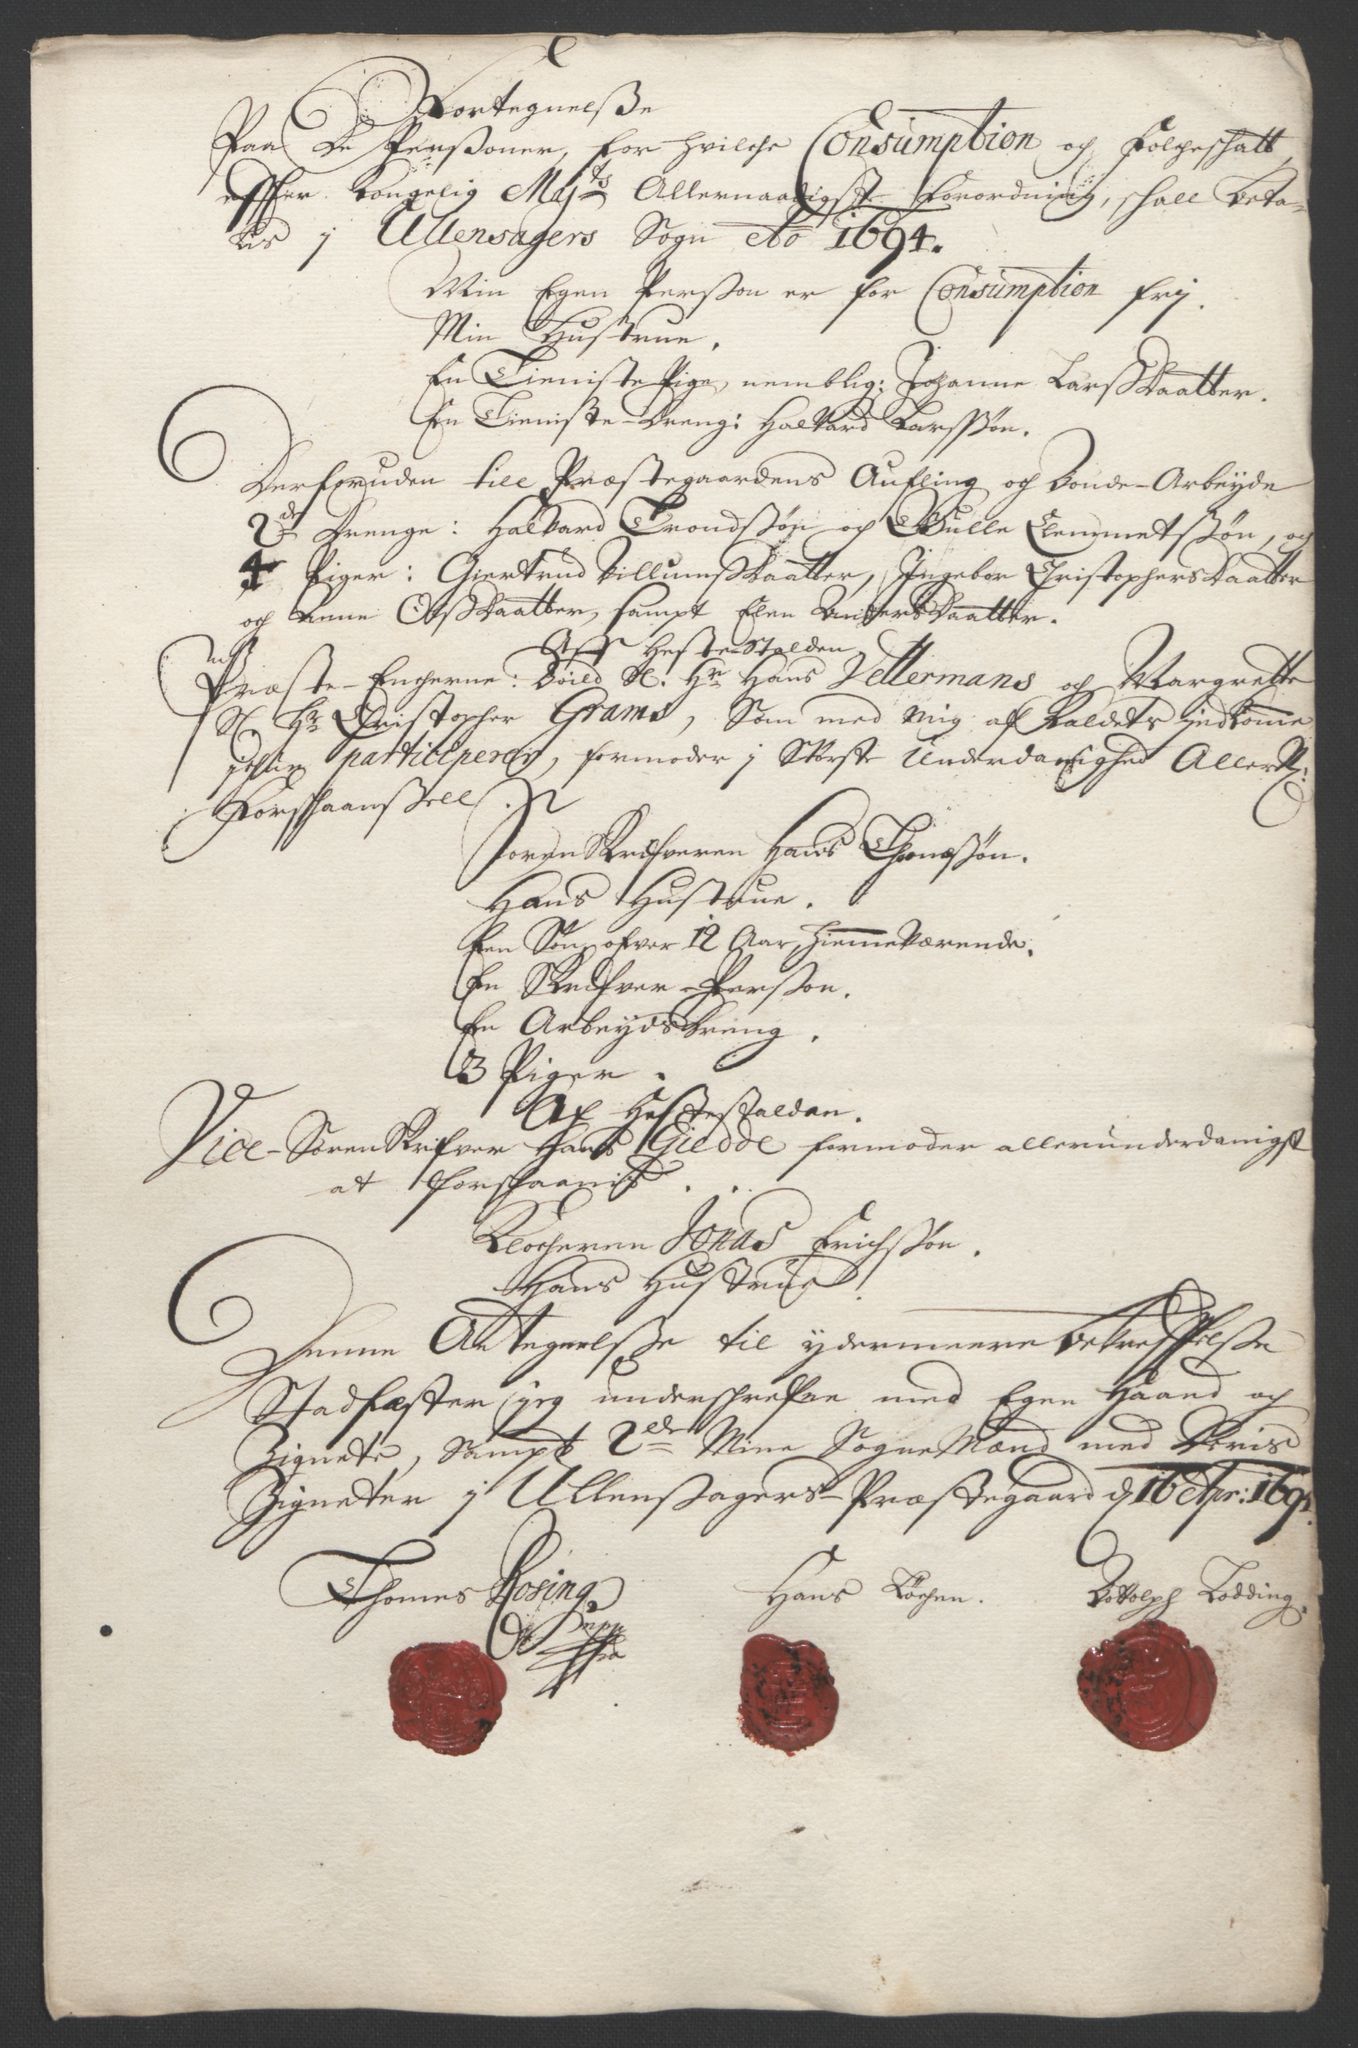 Fortegnelsse
Paa De Perssoner, for hvilche Consumption og Folcheschatt,
effter Kongelig Maj:ts Allernaadigst Forordning, schall beta-
lis j Ullensagers Sogn Ao 1694.
Min Egen Persson er for Consumption frj.
Min Hustrue.
En Tieniste Pige, nemblig: Johanne LarssDaatter.
En Tieniste-Dreng: Halvard Larssøn.
Derforuden till Præstegaardens Aufling och Bonde-Arbeyde
2de Drenge: Halvard Trondssøn och Gulle Clemmetssøn, och
4 Piger: Giertrud VillumssDaatter, Jngebor ChristophersDaatter
och Anne OlssDaatter, sampt Elen AndersDaatter.
Aff Heste-Stalden
Præste-Encherne: Boild Sl. Hr Hans Vellermans och Margrette
Sl Hr Christopher Grams, Som med mig af Kaldets jndkomme
participerer, formoder j Største Underdanighed Aller N:
Forschaanssell.
SorenSkrifveren Hans Thomæssøn.
Hans Hustrue.
Een Søn ofver 12 Aar, hiemmeværende.
En Skrifver-Persson.
En Arbeyds Dreng.
3 Piger.
Af Hestestalden.
Vice-SorenSkrifver Hans Giedde formoder allerunderdanigst
at forschaanis.
Klocheren Jonas Erichssøn.
Hans Hustrue
Denne Antegnelsse til ydermeere bekrefftelsse
Stadfæster jeg underschrefne med Egen Haand och
Zignete, Sampt 2de Mine SogneMænd med Deris
Zigneter j Ullenssagers-Præstegaard d 16 Apr: 1694.
Thomes Rosing Hans Løchen. Rottolph Lodding.